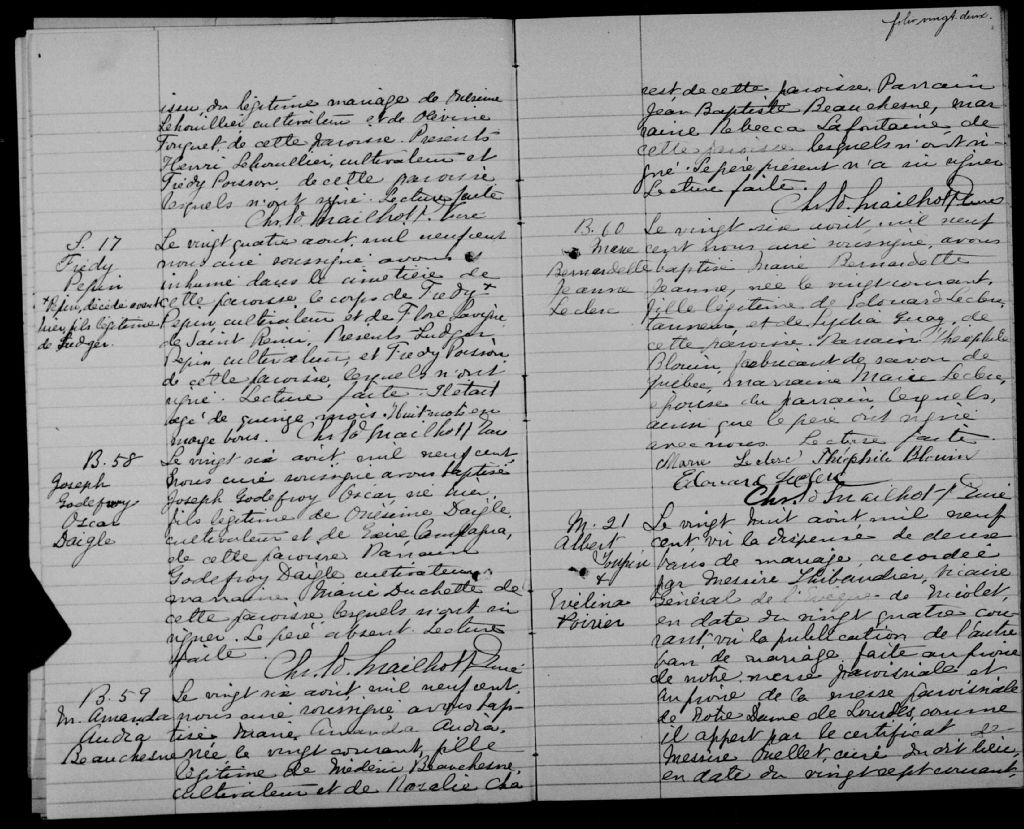 issu du légitime mariage de Onésime
Lehouillier, cultivateur et de Olivine
Fouquet, de cette paroisse. Présents
Henri Lehoullier, cultivateur et
Frédy Poisson, de cette paroisse
lesquels n'ont signé. Lecture faite
Chs. Ed. Mailhot Ptre Curé
S. 17
Frédy
Pepin
+ Pepin, décédé avant
hier, fils légitime
de Ludger.
Le vingt quatre aout, mil neuf cent
nous curé soussigné avons
inhumé dans le cimetière de
cette paroisse, le corps de Frédy +
Pepin, cultivateur et de Flore Lavigne
de Saint Remi. Présents Ludger
Pepin cultivateur, et Frédy Poisson
de cette paroisse, lesquels n'ont
signé. Lecture faite. Il était
agé de quinze mois. Huit mots en
marge bons. Chs. Ed. Mailhot Ptre Curé
B. 58
Joseph
Godefroy
Oscar
Daigle
Le vingt six aout, mil neuf cent
nous curé soussigné avons baptisé
Joseph Godefroy Oscar né hier
fils légitime de Onésime Daigle,
cultivateur et de
de cette paroisse Parrain
Godefroy Daigle, cultivateur,
marraine Marie Duchette de
cette paroisse, lesquels n'ont su
signer. Le père absent. Lecture
faite.
Chs. Ed. Mailhot Ptre Curé
B. 59
M. Amanda
Audia
Beauchesne
Le vingt six aout mil neuf cent,
nous curé, soussigné avons bap-
tisé Marie Amanda Audia,
née le vingt courant, fille
légitime de Médéric Beauchesne,
cultivateur et de Rosalie Cha
folio vingt deux.
rest de cette paroisse. Parrain
Jean Baptiste Beauchesne, mar
raine Rebecca Lafontaine, de
cette paroisse lesquels n'ont si-
gné. Le père présent n'a su signer
Lecture faite.
Chs. Ed. Mailhot Ptre Curé
B. 60
Marie
Bernadette
Jeanne
Leclerc
Le vingt six août, mil neuf
cent nous curé soussigné, avons
baptisé Marie Bernadette
Jeanne, née le vingt courant,
fille légitime de Edouard Leclerc,
tanneur, et de Lydia Guay, de
cette paroisse. Parrain Théophile
Blouin, fabricant de savon de
Québec, marraine Marie Leclerc,
épouse du parrain lesquels,
ainsi que le père ont signé
avec nous. Lecture faite.
Marie Leclerc Théophile Blouin
Edouard Leclerc
Chs. Ed. Mailhot Ptre Curé
M. 21
Albert
Toupin
+
Evélina
Poirier
Le vingt huit août, mil neuf
cent, vu la dispense de deux
bans de mariage, accordée
par Messire Thibaudier, Vicaire
Général de l'Évêque de Nicolet,
en date du vingt quatre cou-
rant, vu la publication de l'autre
ban de mariage, faite au prône
de notre messe paroissiale et
au prône de la messe paroissiale
de Notre Dame de Lourdes, comme
il appert par le certificat de
Messire Ouellet, curé du dit lieu,
en date du vingt sept courant,